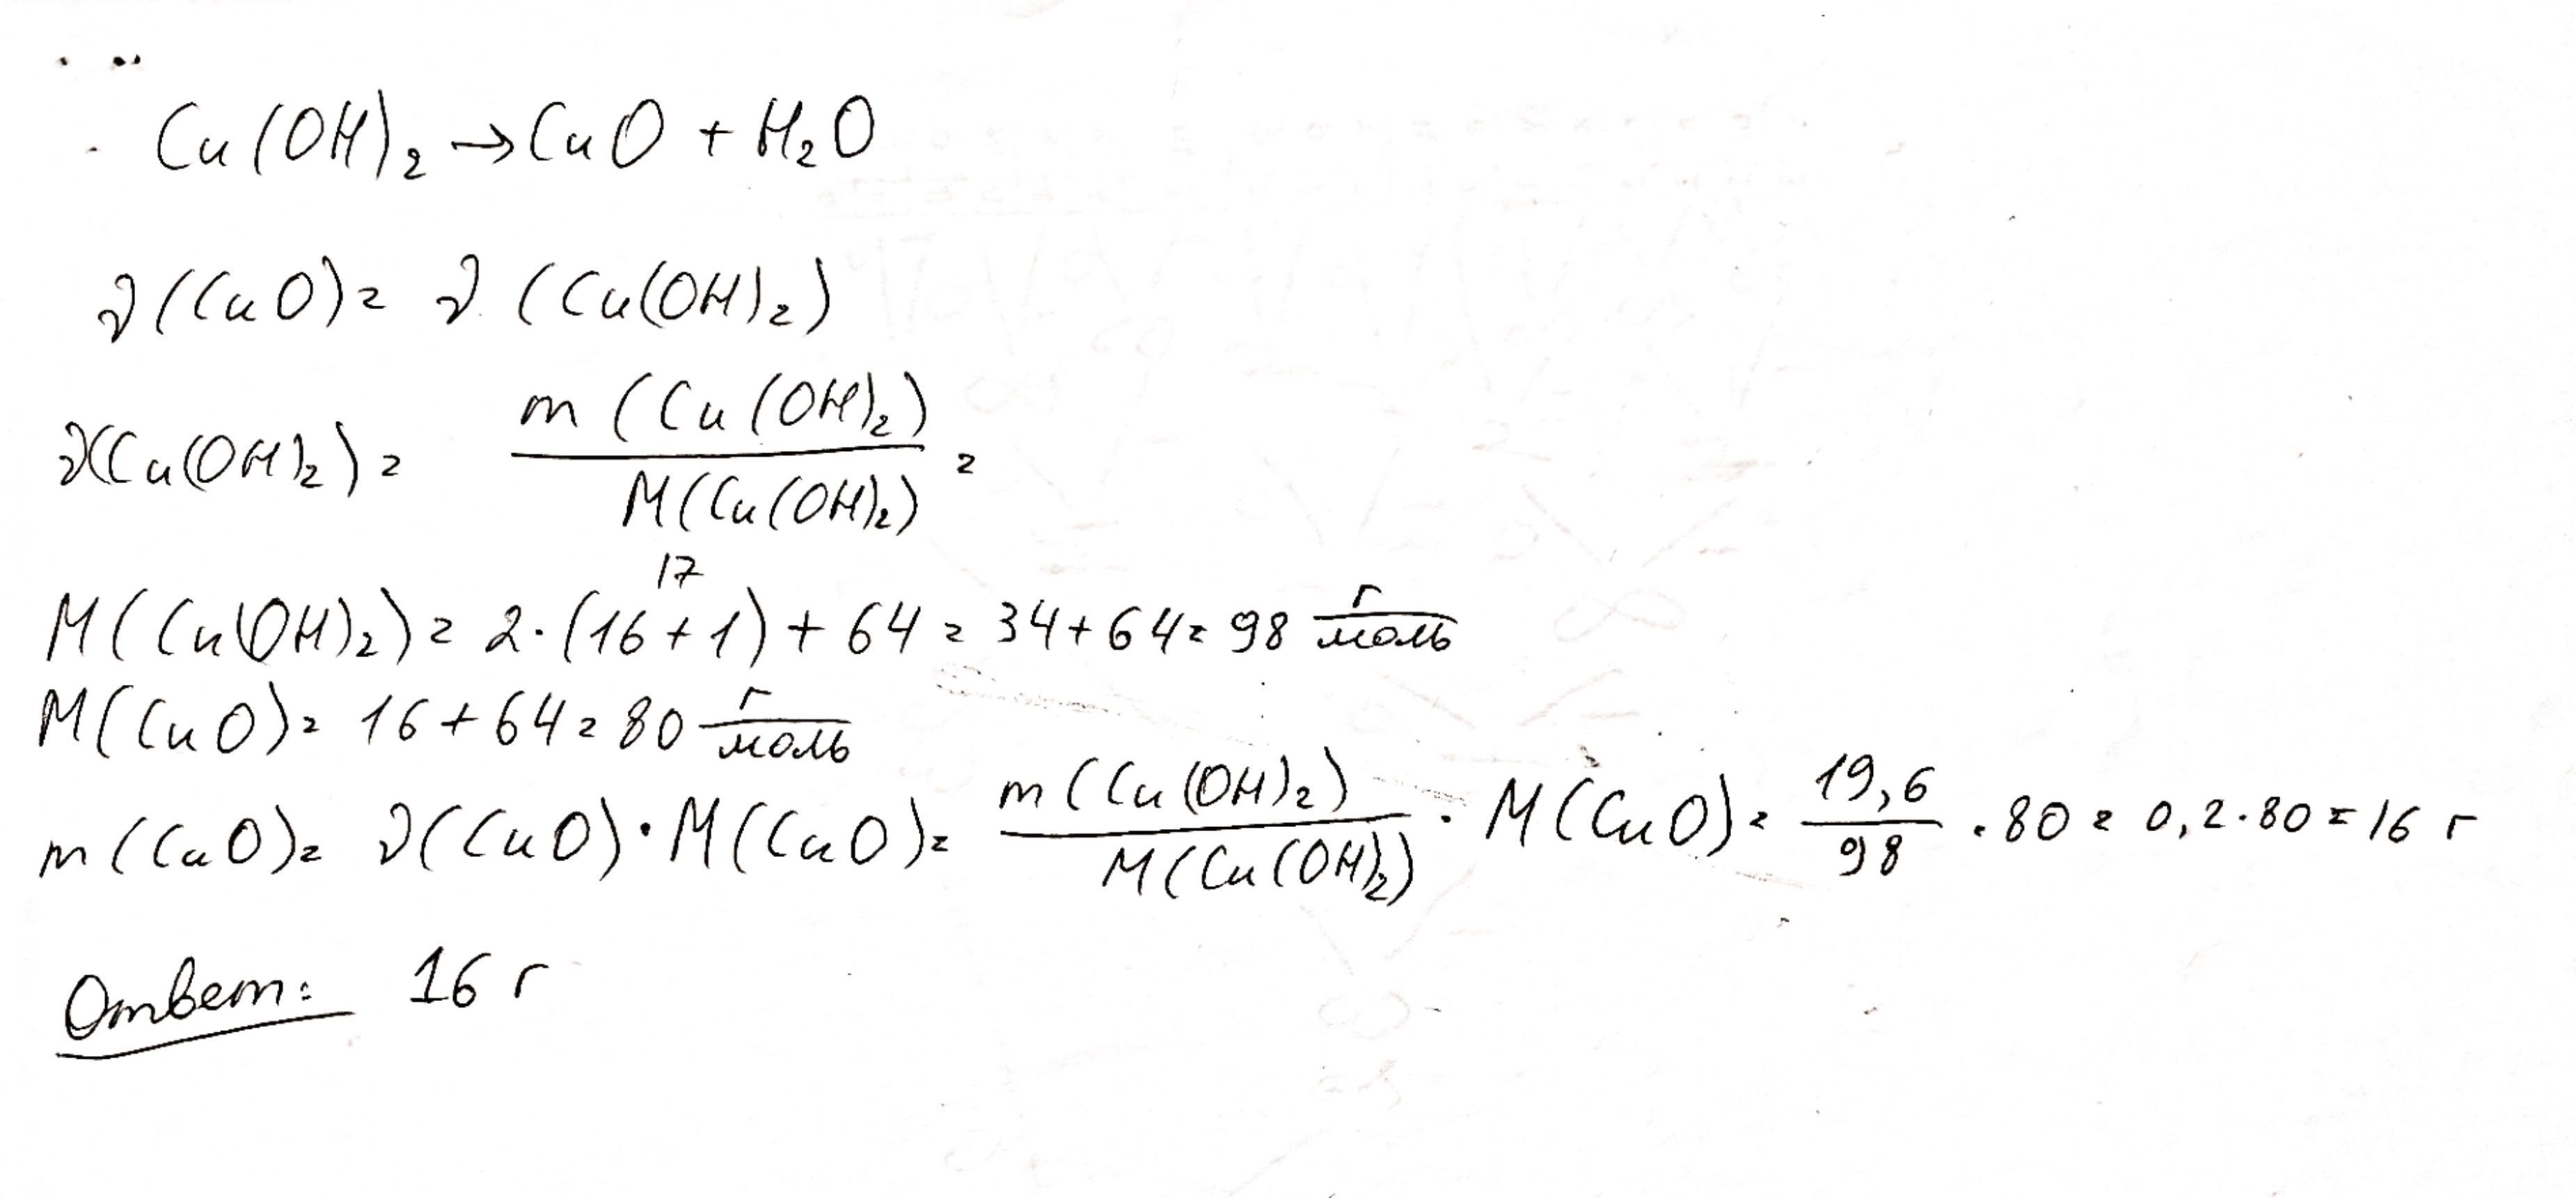 Cu(OH)₂ → CuO + H₂O
ν(CuO) = ν(Cu(OH)₂)
ν(Cu(OH)₂) = m(Cu(OH)₂) / M(Cu(OH)₂) =
17
M(Cu(OH)₂) = 2·(16+1) + 64 = 34+64 = 98 г/моль
M(CuO) = 16+64 = 80 г/моль
m(CuO) = ν(CuO)·M(CuO) = m(Cu(OH)₂) / M(Cu(OH)₂) · M(CuO) = 19,6 / 98 · 80 = 0,2·80 = 16 г
Ответ: 16 г